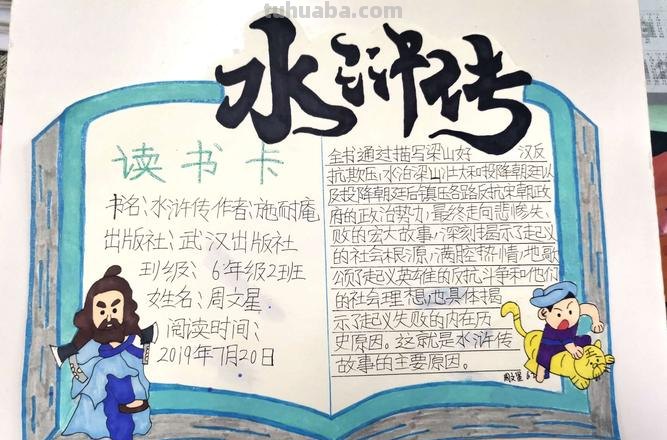 tuhuaba.com
水浒传
读书卡
书名:水浒传 作者:施耐庵
出版社:武汉出版社
班级:6年级2班
姓名:周文星
阅读时间:
2019年7月20日
全书通过描写梁山好 汉反
抗欺压,水泊梁山壮大和投降朝廷以
及投降朝廷后镇压各路反抗宋朝政
府的政治势力,最终走向悲惨失
败的宏大故事,深刻揭示了起义
的社会根源,满腔热情地歌
颂了起义英雄的反抗斗争和他们
的社会理想,也具体揭
示了起义失败的内在历
史原因。这就是水浒传
故事的主要原因。
周文星